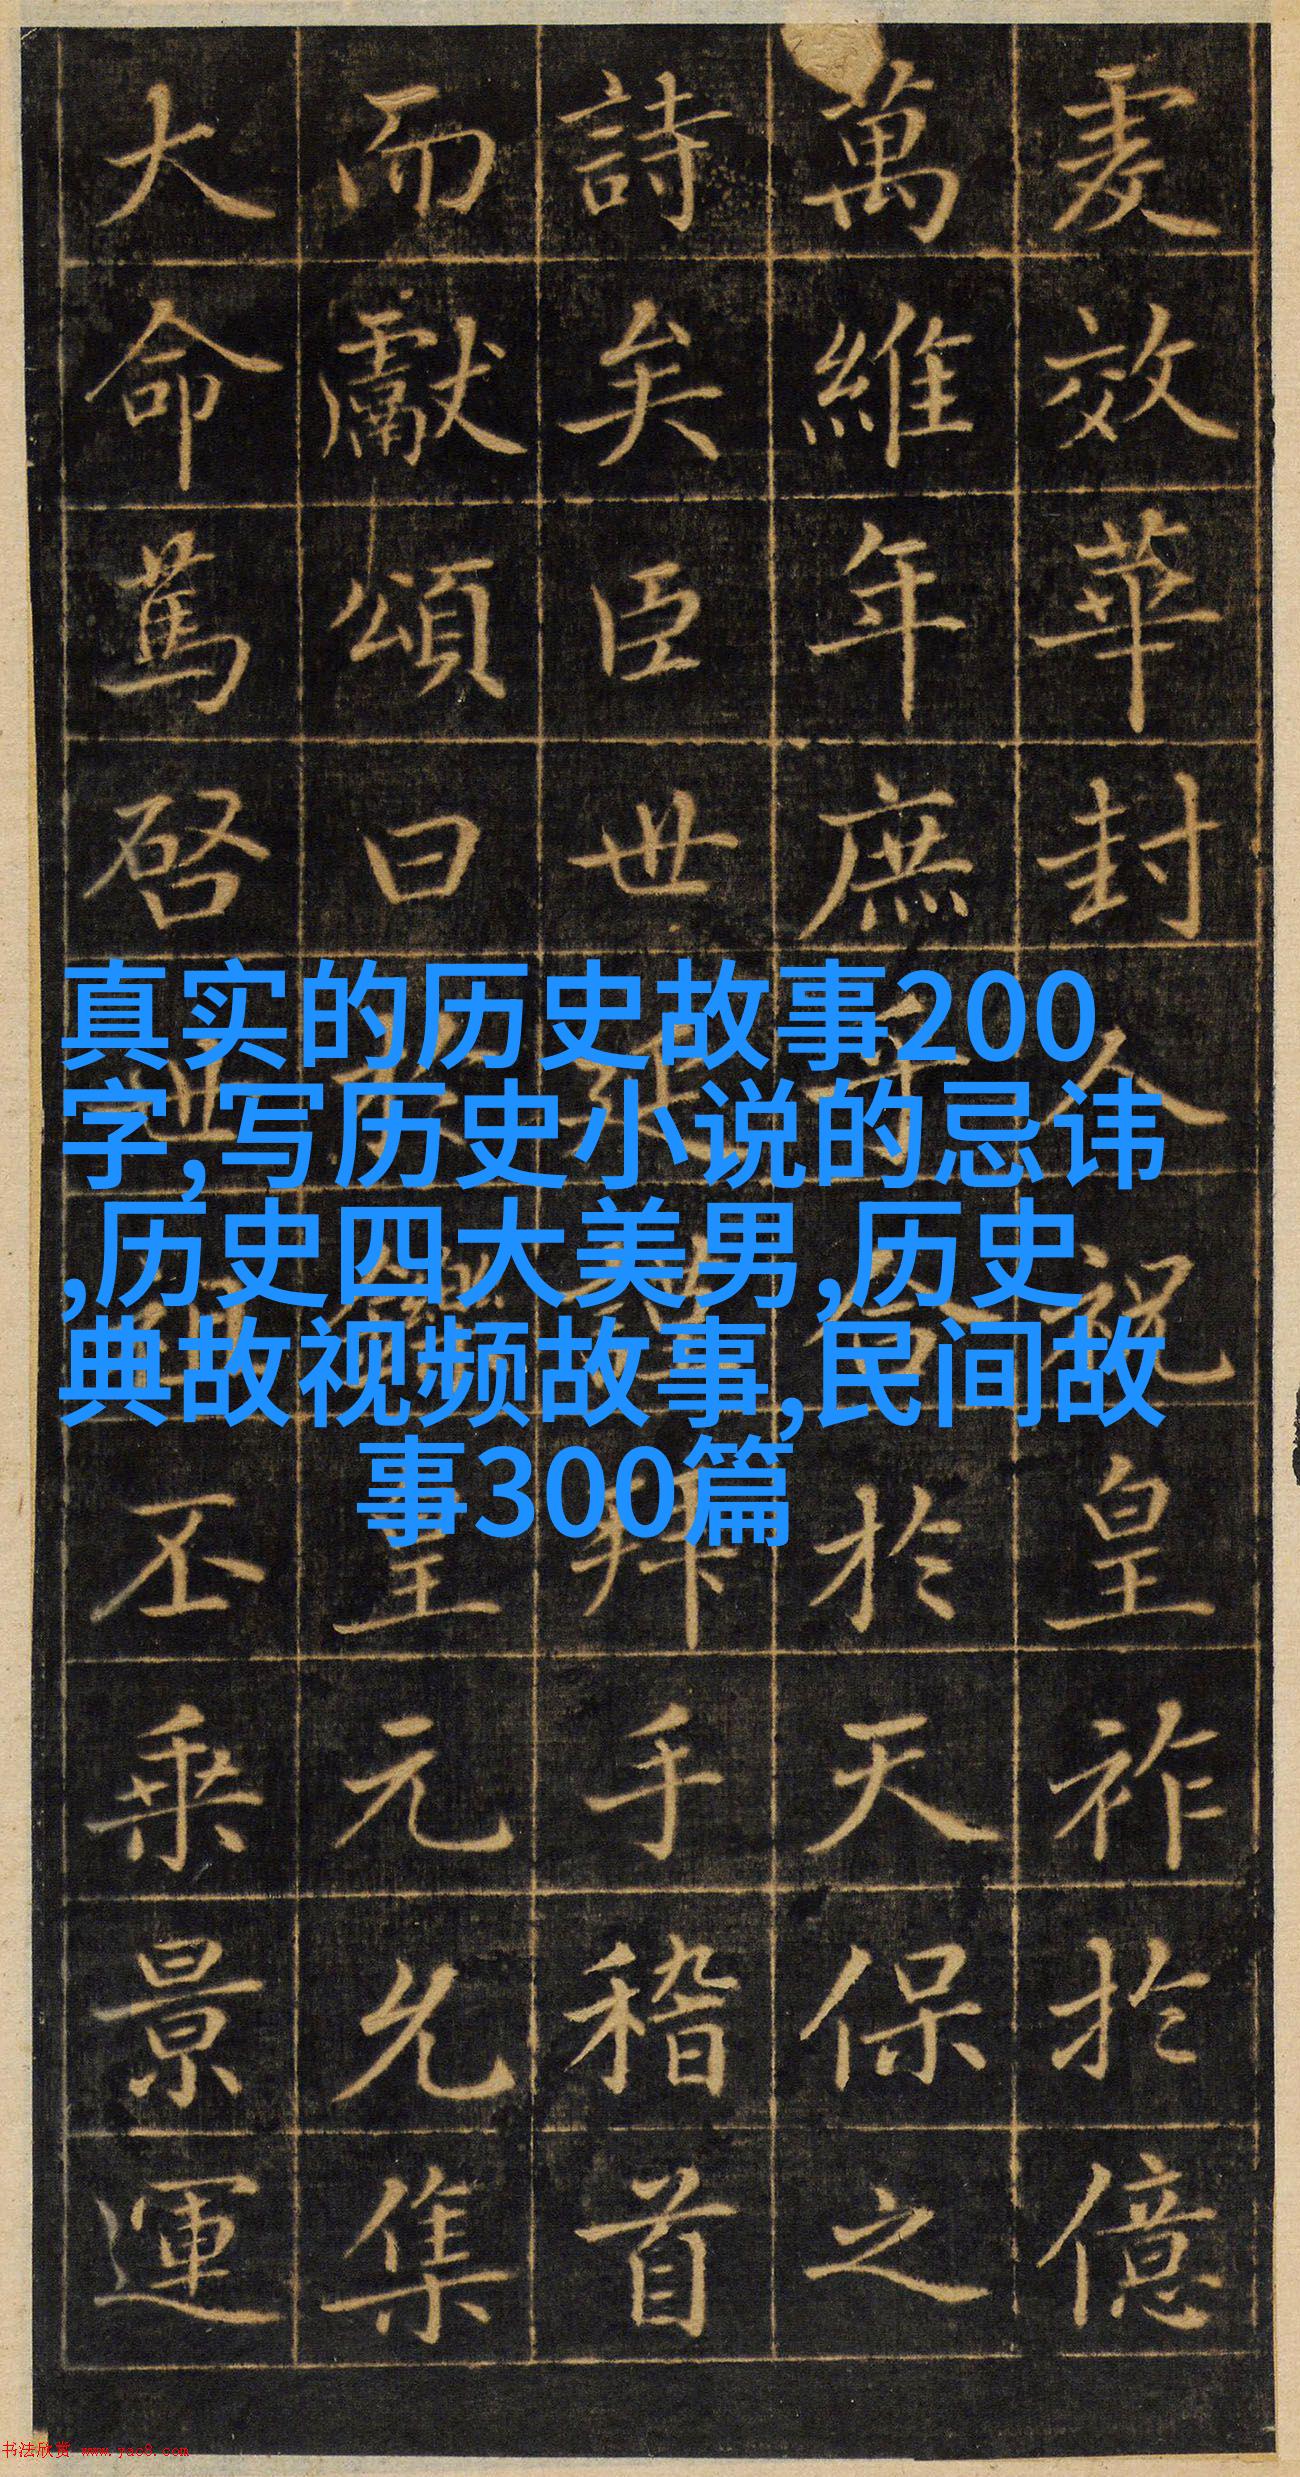 爰效華封人祝皇祚於億
萬維年庶乎合於天保之
詩矣臣世延謹拜手稽首
而獻頌曰鑠皇元允集
大命篤啓丕乘景運
真实的历史故事200
字,写历史小说的忌讳
,历史四大美男,历史
典故视频故事,民间故
事300篇
书法欣赏 www.yac8.com